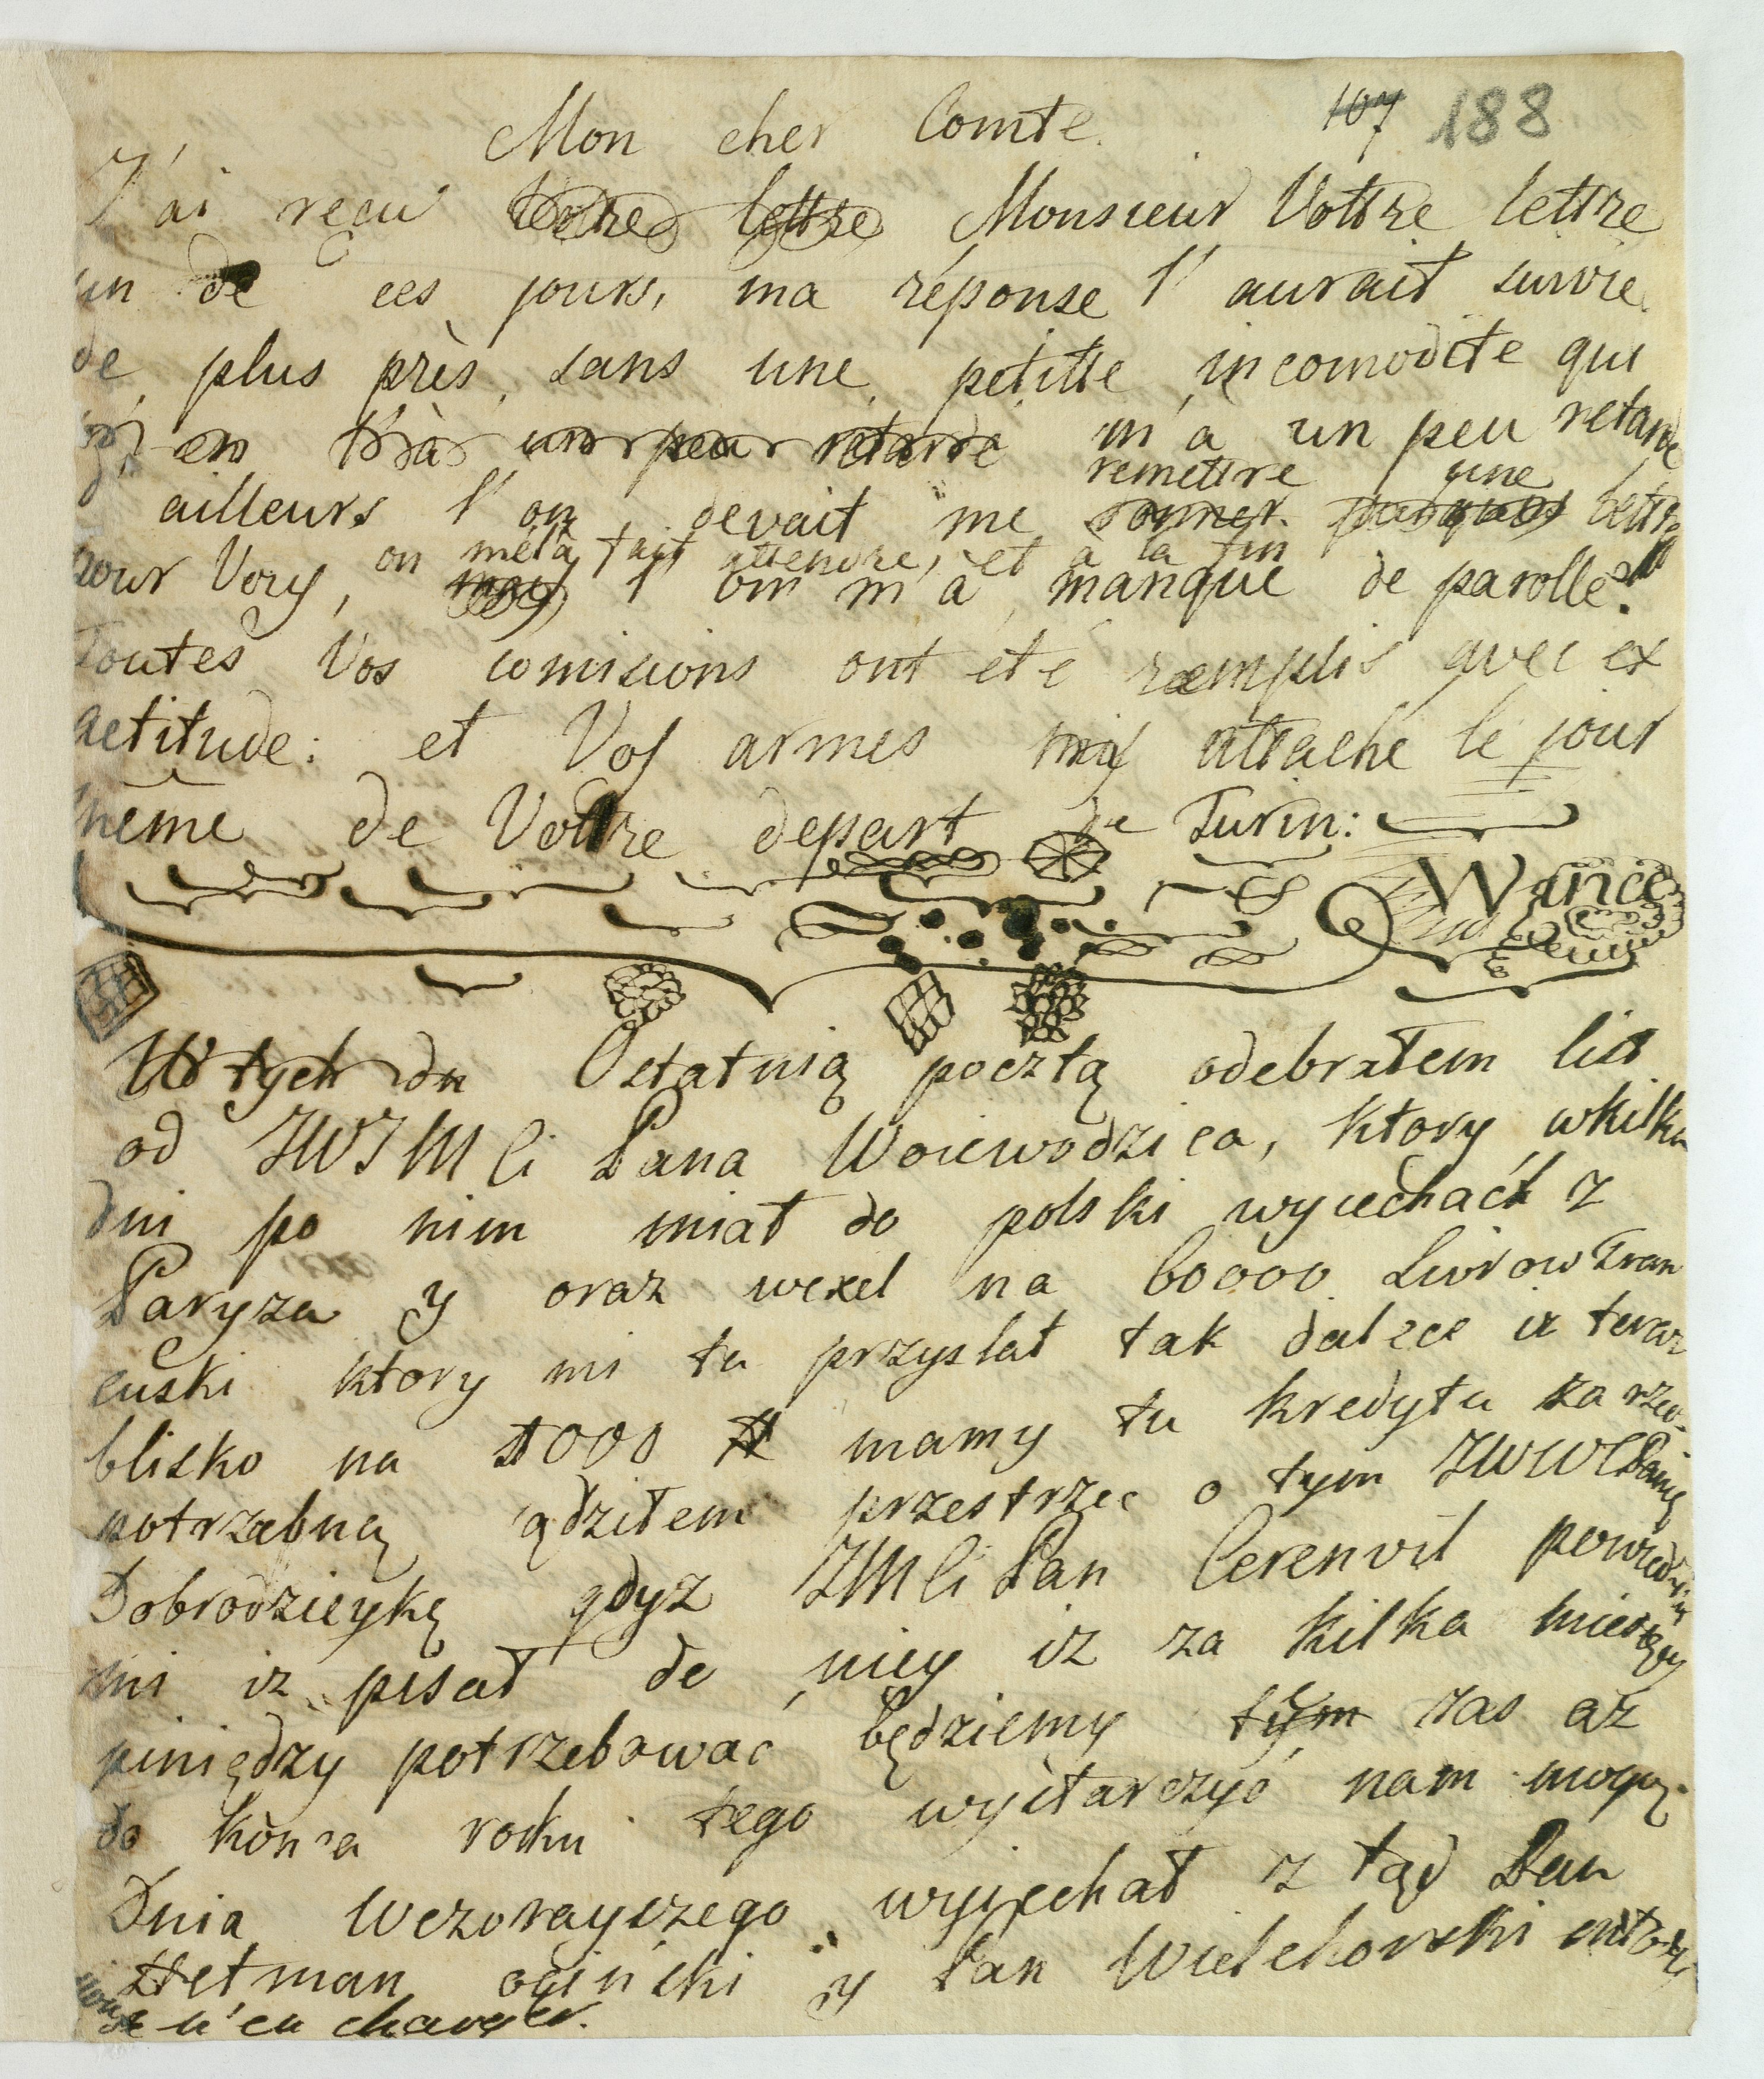 107 188
Mon cher Comte.
J'ai recu Votre lettre Monsieur Vottre lettre
un de ces jours, ma réponse l'aurait suivre
de plus près, sans une petitte incomodite qui
en m'a un peu retardé m'a un peu retardé
remettre une
ailleurs l'on devait me donner lettre
on m'età fait attendre, et a la fin
pour Very, l'on m'a manque de parolle.
Toutes Vos comisions ont eté remplis avec ex
actitude: et Vos armes attaché le jour
même de Vottre depart de Turin:
W tych dn Ostatnią pocztą odebrałem list
od JWJMCi Pana Woiewodzica, ktory wkilka
dni po nim miał do polski wyiechać z
Paryza y oraz wexel na 60000 Liwrow Fran
cuski ktory mi tu przysłał tak dalece iz teraz
blisko na 5000 # mamy tu kredytu za rzecz
potrzebną sądziłem przestrzec o tym JWWCPanią
Dobrodzieykę gdyz JMCi Pan Cerenvil powiedział
mi iz pisał do niey iz za kilka miesięcy
piniędzy potrzebować będziemy tym zas az
do końca roku tego wystarczyć nam mogą.
Dnia Wczorayszego wyiechał z tąd Pan
Hetman oginski y Pan Wielehorski młodzy
se n'en charger.